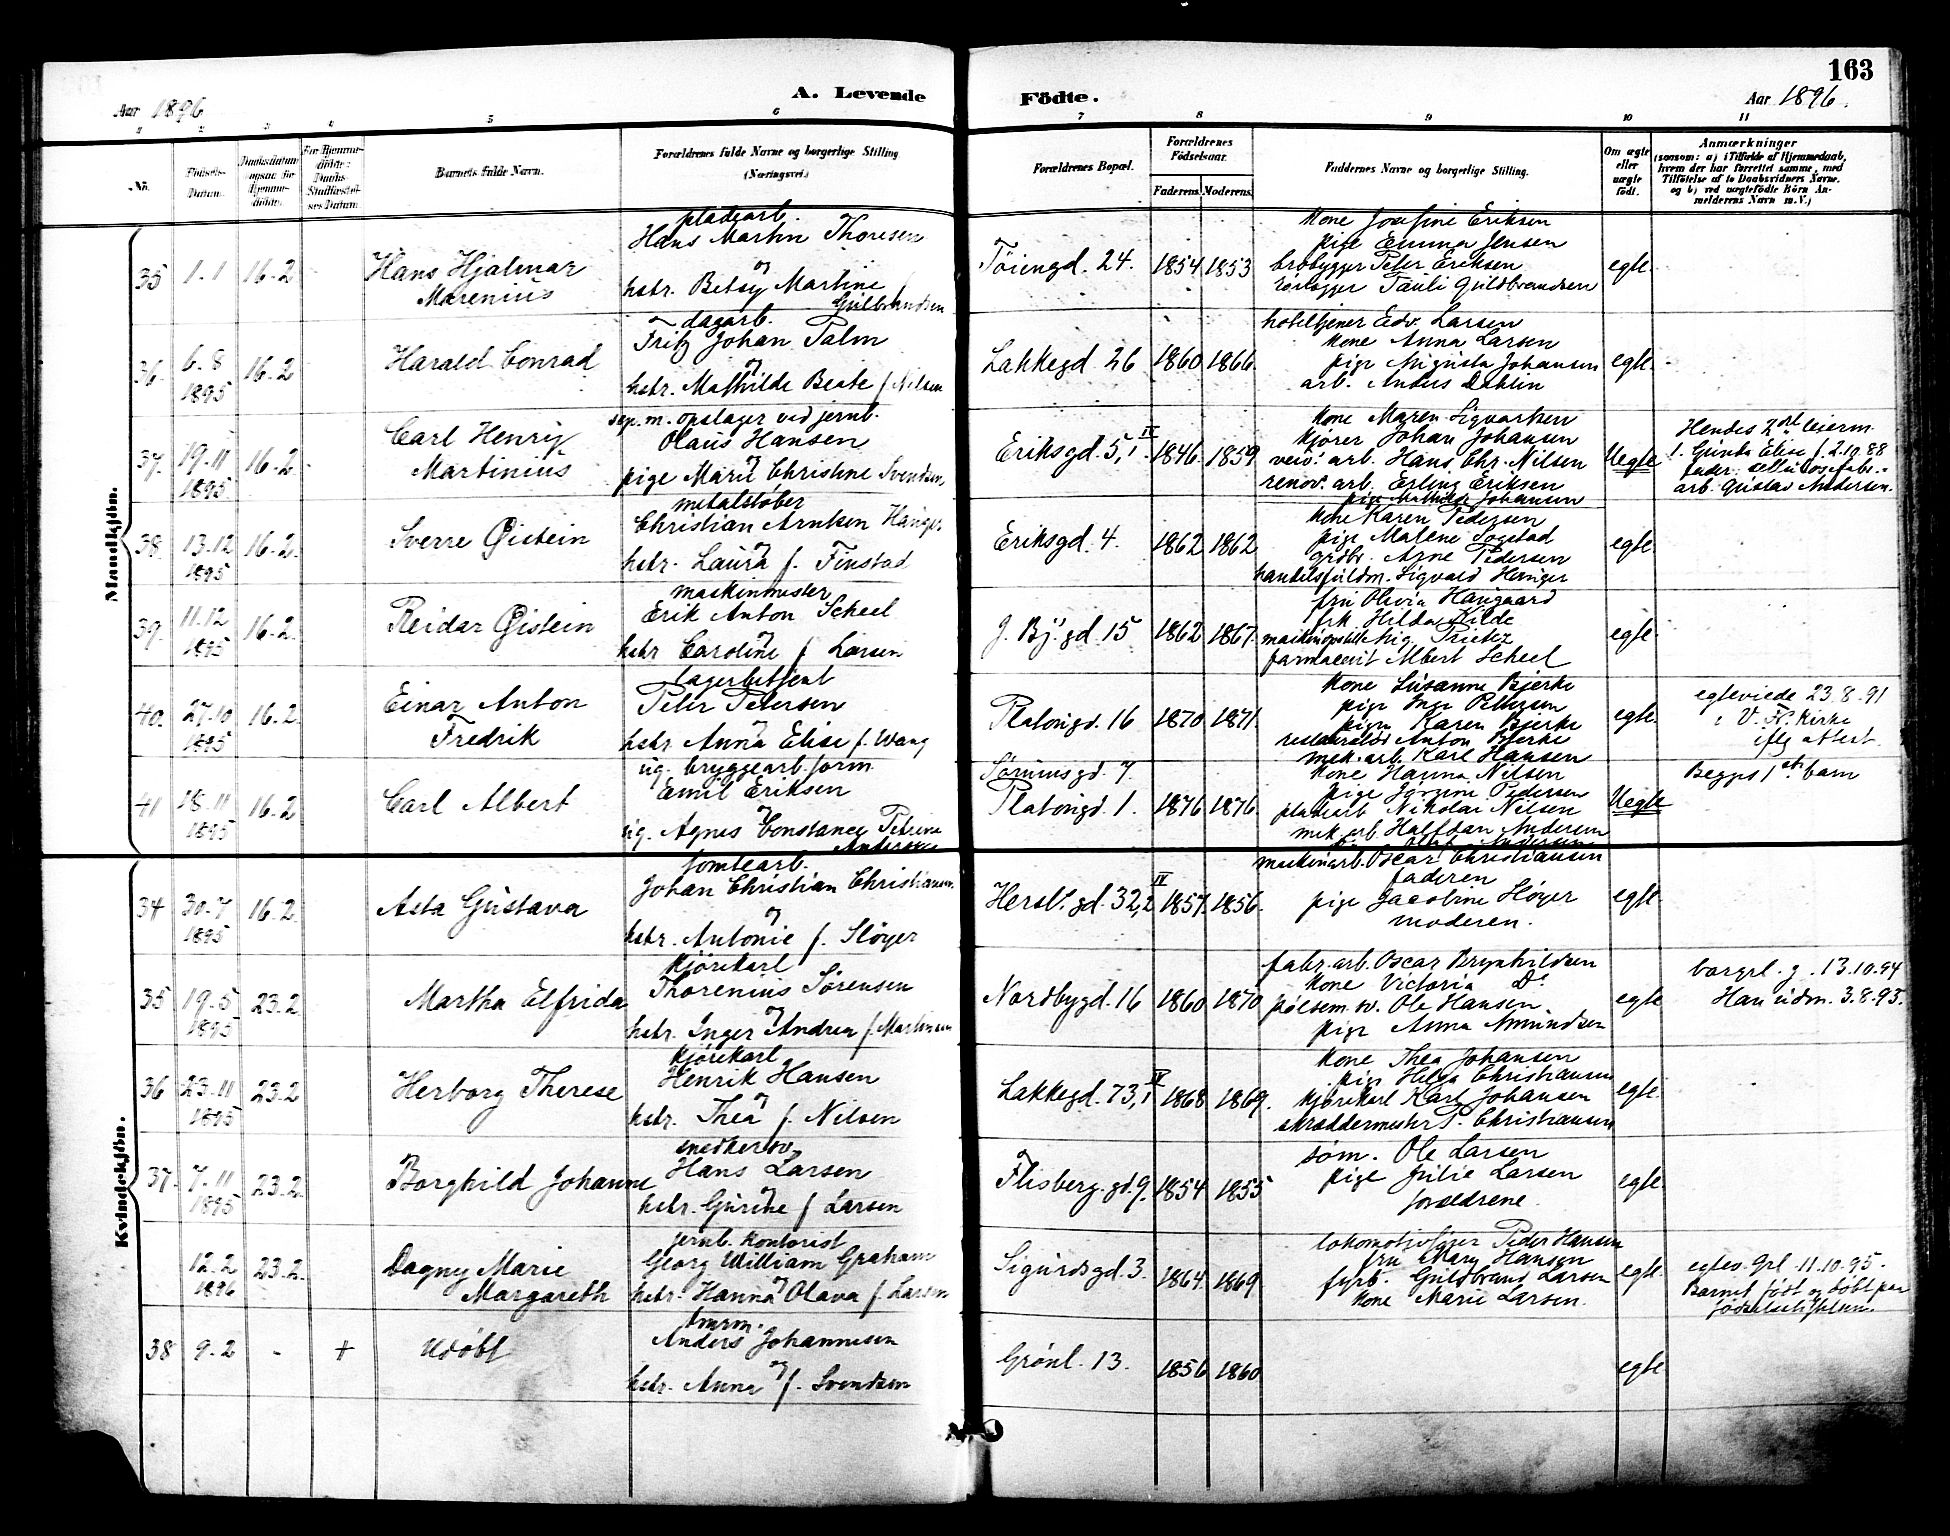 163
Aar 1896
A. Levende Födte.
Aar 1896.
2 3 4 5 6 7 8 9 10 11
No.
Födsels-Datum.
Barnets fulde Navn.
Forældrenes fulde Navne og borgerlige Stilling
(Næringsvei.)
Forældrenes Bopæl.
Forældrenes Födselsaar.
Faderens. Moderens.
Faddernes Navne og borgerlige Stilling.
Om ægte eller uægte födt.
Anmærkninger
(saasom: a) i Tilfælde af Hjemmedaab, hvem der har forrettet samme, med Tilföielse af to Daabsvidners Navne, og b) ved uægtefödte Börn Anmelderens Navn m.V.)
Mandkjön.
35 1.1 16.2 Hans Hjalmar Marenius
pladearb.
Hans Martin Thoresen
og
hstr. Betsy Martine Gulbrandsen
Töiengd. 24. 1854 1853
kone Josefine Eriksen
pige Emma Jensen
brobygger Peter Eriksen
rörlægger Pauli Guldbrandsen
egte
36. 6.8 1895 16.2 Harald Conrad
dagarb.
Fritz Johan Palm
og
hstr. Mathilde Beate f. Nilsen
Lakkegd. 26 1860 1866
hoteltjener Edv. Larsen
kone Anna Larsen
pige Augusta Johansen
arb. Anders Dahlin
egte.
37. 19.11 1895 16.2 Carl Henrik Martinius
sep. m. opslager ved jernb.
Olaus Hansen
og
pige Marie Christine Svendsen
Eriksgd. 5, IV 1846 1859
kone Maren Sigvartsen
kjörer Johan Johansen
veiv. arb. Hans Chr. Nilsen
renov. arb. Erling Eriksen
pige Mathilde Johansen
Uegte
Hendes 2det leierm.
1. Gunda Elise f. 2.10.88
fader: cellulosefabr.-
arb. Gustav Andersen.
38. 13.12 1895 16.2. Sverre Öistein
metalstöber
Christian Arntsen Hanger
og
hstr. Laura f. Finstad
Eriksgd. 4. 1862 1862
kone Karen Pedersen
pige Malene Sogstad
grdbr. Arne Pedersen
handelsfuldm. Sigvald Hanger
egte
39. 11.12 1895 16.2. Reidar Öistein
maskinmester
Erik Anton Scheel
og
hstr Caroline f Larsen
g. Bj. gd. 15 1862 1867.
fru Olivia Haugaard
frk. Hilda Kilde
farmaceut Albert Scheel
egte
40. 27.10 1895 16.2. Einar Anton Fredrik
lagerbetjent
Peter Petersen
og
hstr. Anna Elise f. Wang
Platougd. 16 1870 1871.
kone Susanne Bjerke
pige Inga Petersen
pige Karen Bjerke
Anton Bjerke
mek. arb. Karl Hansen
egte.
egteviede 23.8.91
i V. Fr. Kirke
iflg attest.
41 18.11 1895 16.2 Carl Albert
ug. bryggearb. form
Emil Eriksen
og
ug. Agnes Constance Petrine Andersen
Sörumsgd. 7.
Platougd. 1. 1876 1876
kone Hanna Nilsen
pige Jörgine Pedersen
pladearb Nikolai Nilsen
mek. arb. Halfdan Andersen
Uegte
Begges 1ste barn
Kvindekjön.
34 30.7 1895 16.2. Asta Gustava
tomtearb.
Johan Christian Christiansen
og
hstr. Antonie f. Höyer
Hersl. gd. 32, IV 1857. 1856.
maskinarb. Oscar Christiansen
faderen
pige Jacobine Höyer
moderen.
egte
35 19.5 1895 23.2 Martha Elfrida
kjörekarl
Thorenius Sörensen
og
hstr. Inger Andrea f. Martinsen
Nordbygd. 16 1860 1870
fabr. arb. Oscar Brynhildsen
kone Victoria Do
pölsem. sv. Ole Hansen
pige Anna Amundsen
egte
borgrl. g. 13.10.94
Han udm. 3.8.93.
36 23.11 1895 23.2 Herborg Therese
kjörekarl
Henrik Hansen
og
hstr. Thea f. Nilsen
Lakkegd. 73, IV 1868 1869.
kone Thea Johansen
pige Helga Christiansen
kjörekarl Karl Johansen
skræddermester P. Christiansen
egte.
37. 7.11 1895 23.2. Borghild Johanne
snedkersv.
Hans Larsen
og
hstr. Gurine f Larsen
Flisberg. gd. 9. 1854 1855
söm. Ole Larsen
pige Julie Larsen
forældrene.
egte
12.2 1896 23.2. Dagny Marie Margareth
jernb. kontorist
Georg William Graham
og
hstr. Hanna Olava f Larsen
Sigurdsgd. 3. 1864 1869
lokomotivförer Peder Hansen
fru Mary Hansen
fyrb. Guldbrand Larsen
kone Marie Larsen.
egte
egtev. Grl 11.10.95.
Barnet födt og döbt paa
födselsstiftelsen.
38 9.2 - + Udöbt
tmrm.
Anders Johannesen
og
hstr. Anna f. Svendsen
Grönl. 13. 1856 1860
egte